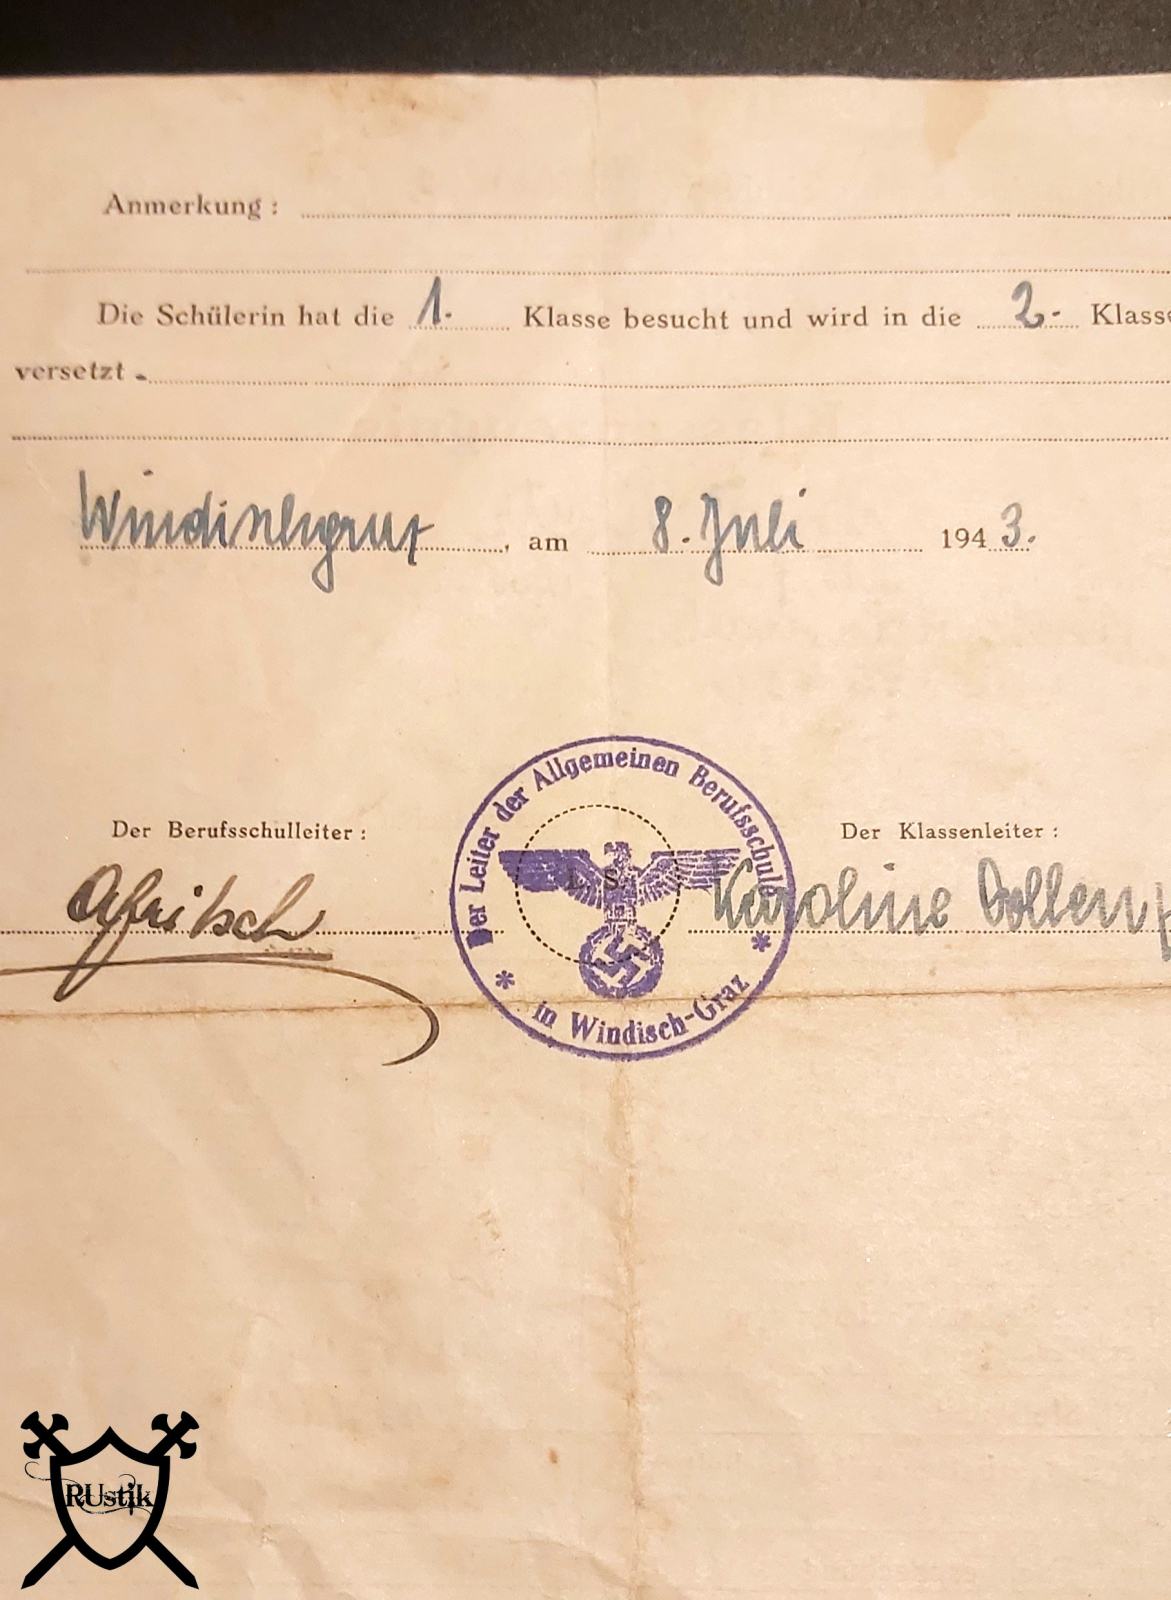 Anmerkung :
Die Schülerin hat die 1. Klasse besucht und wird in die 2. Klasse
versetzt .
Windischgraz, am 8. Juli 1943.
Der Leiter der Allgemeinen Berufsschule
Der Berufsschulleiter : Der Klassenleiter :
L. S.
Karoline
* in Windisch-Graz *
RUstik